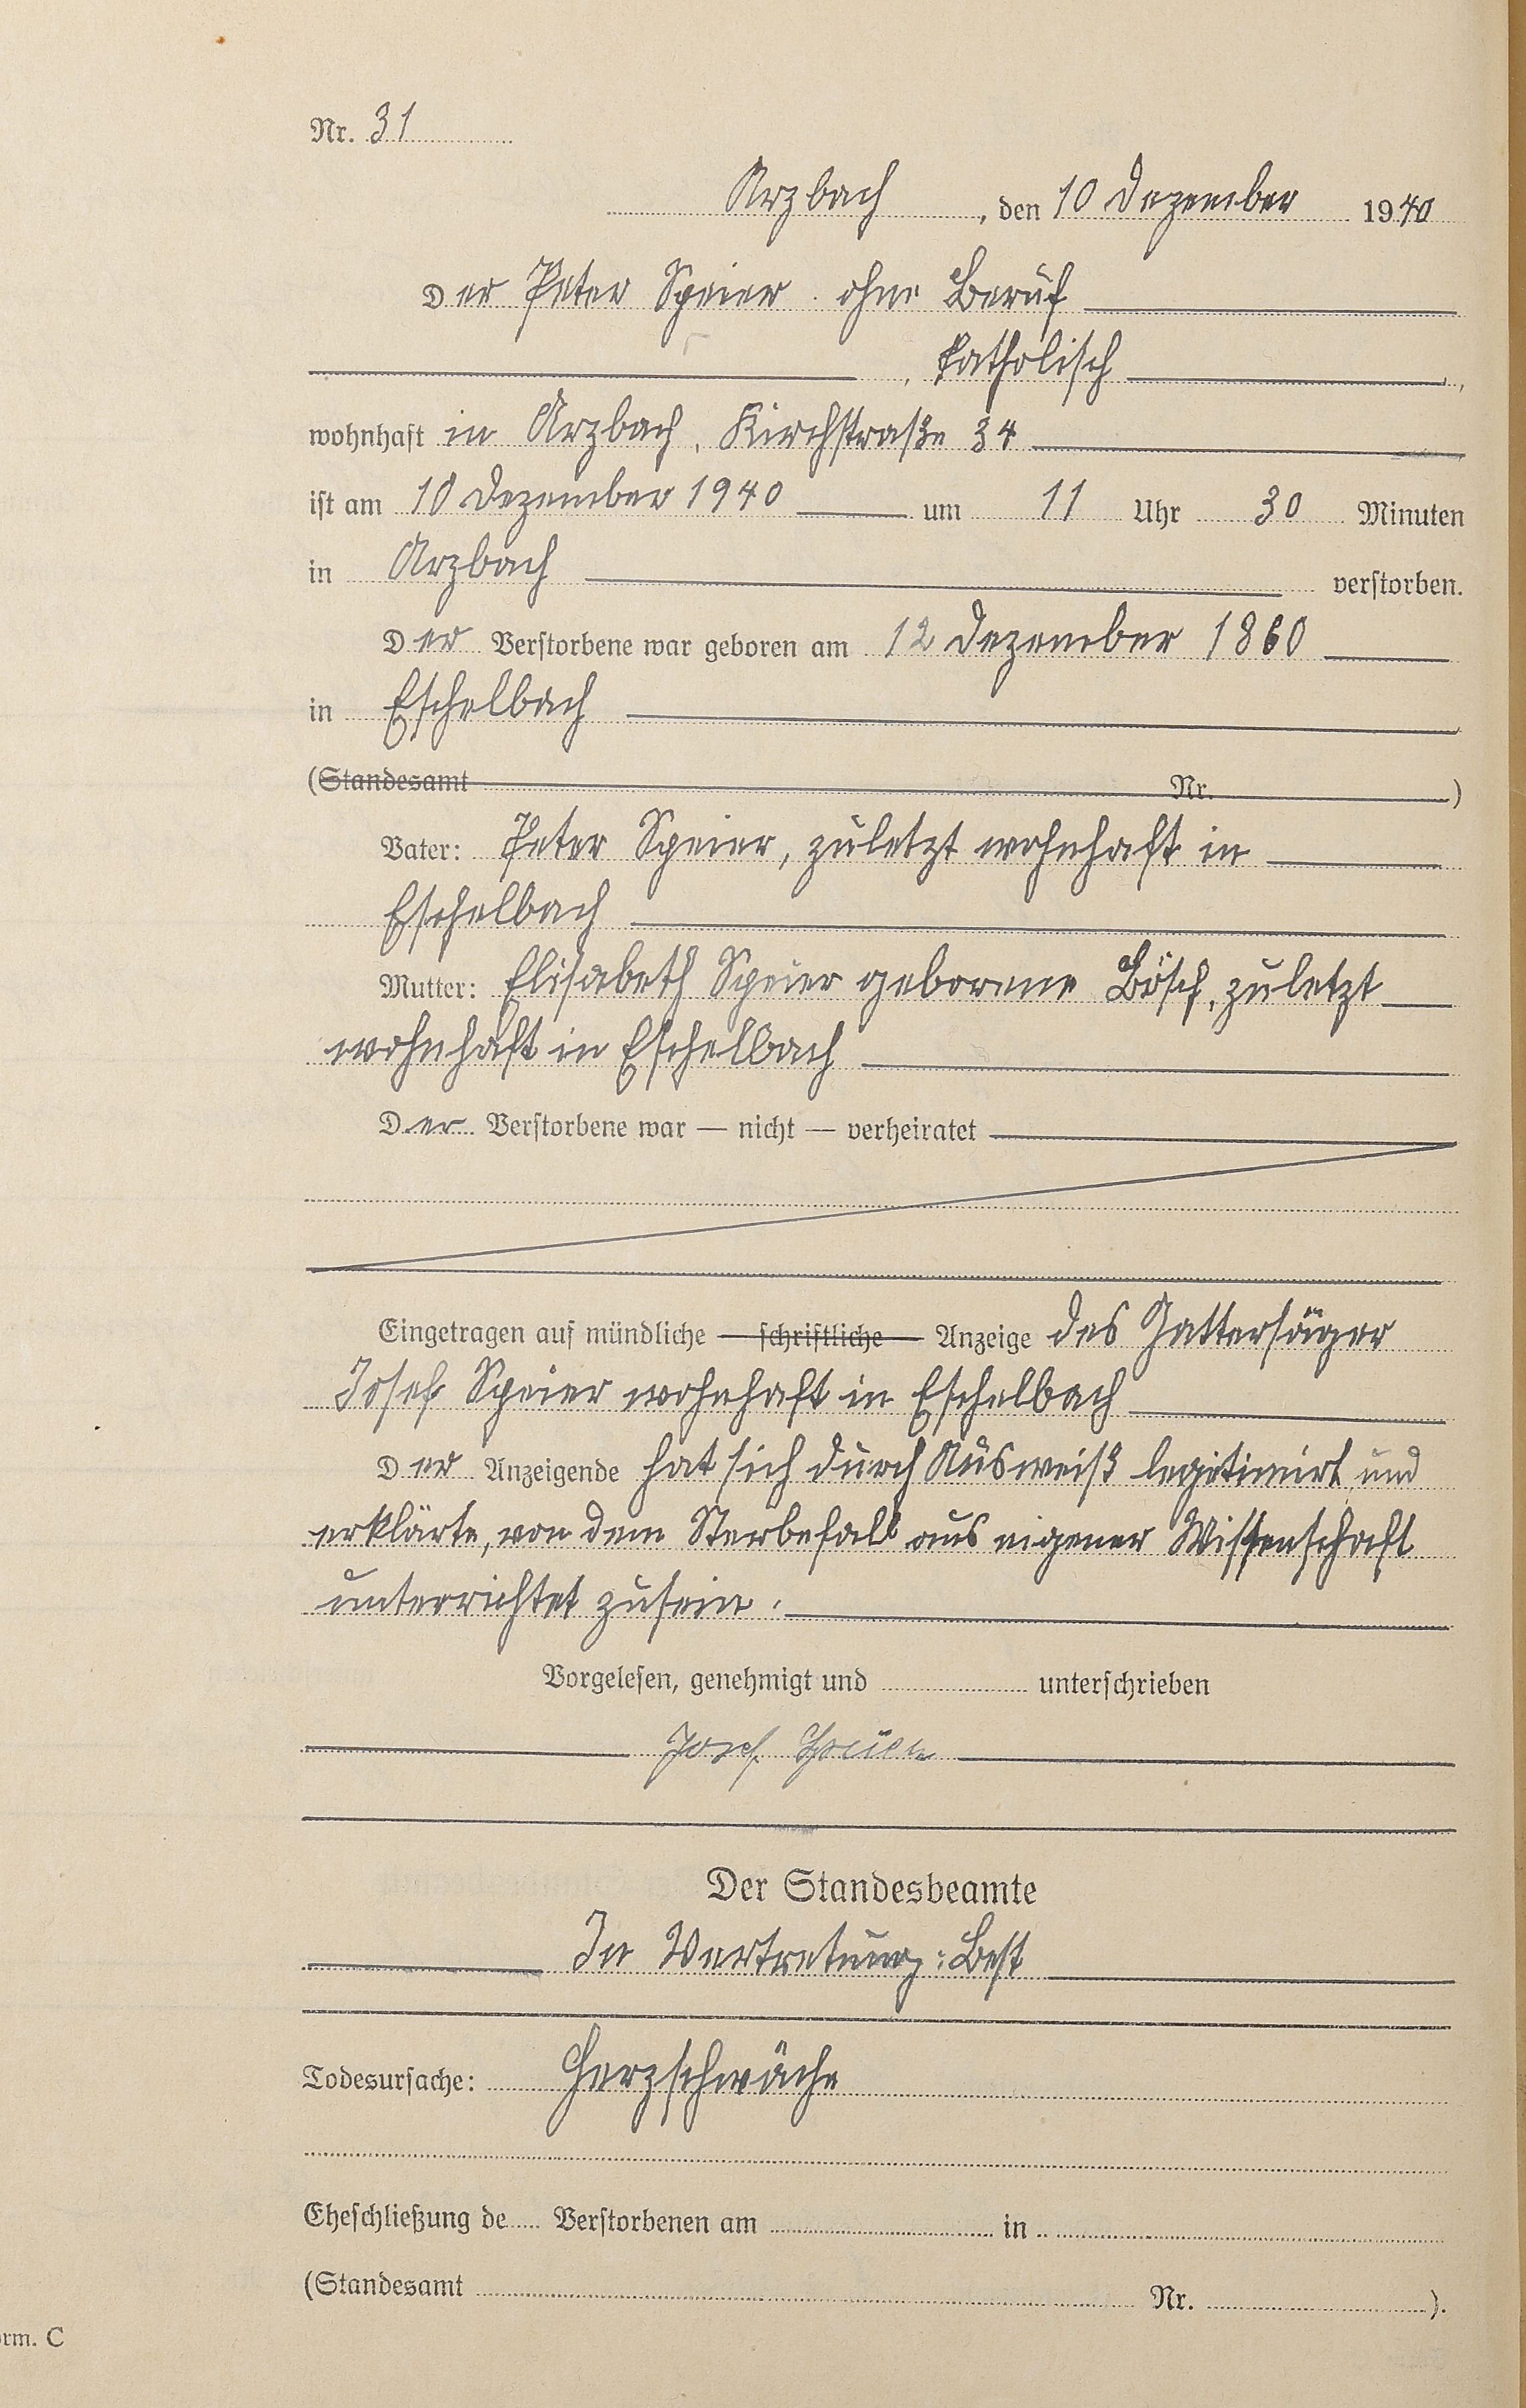 Nr. 31
Arzbach, den 10 Dezember 1940
Der Peter Speier. ohne Beruf
, katholisch,
wohnhaft in Arzbach, Kirchstraße 34
ist am 10 Dezember 1940 um 11 Uhr 30 Minuten
in Arzbach verstorben.
Der Verstorbene war geboren am 12 Dezember 1860
in Eschelbach
(Standesamt Nr. )
Vater: Peter Speier, zuletzt wohnhaft in
Eschelbach
Mutter: Elisabeth Speier geborene Bösch, zuletzt
wohnhaft in Eschelbach
Der Verstorbene war — nicht — verheiratet
Eingetragen auf mündliche — schriftliche — Anzeige des Gattersäger
Josef Speier wohnhaft in Eschelbach
Der Anzeigende hat sich durch Ausweiß legitimirt und
erklärte, von dem Sterbefall aus eigener Wissenschaft
unterrichtet zusein.
Vorgelesen, genehmigt und unterschrieben
Josef Speier
Der Standesbeamte
In Vertretung: Best
Todesursache: Herzschwäche
Eheschließung de Verstorbenen am in
(Standesamt Nr. ).
orm. C